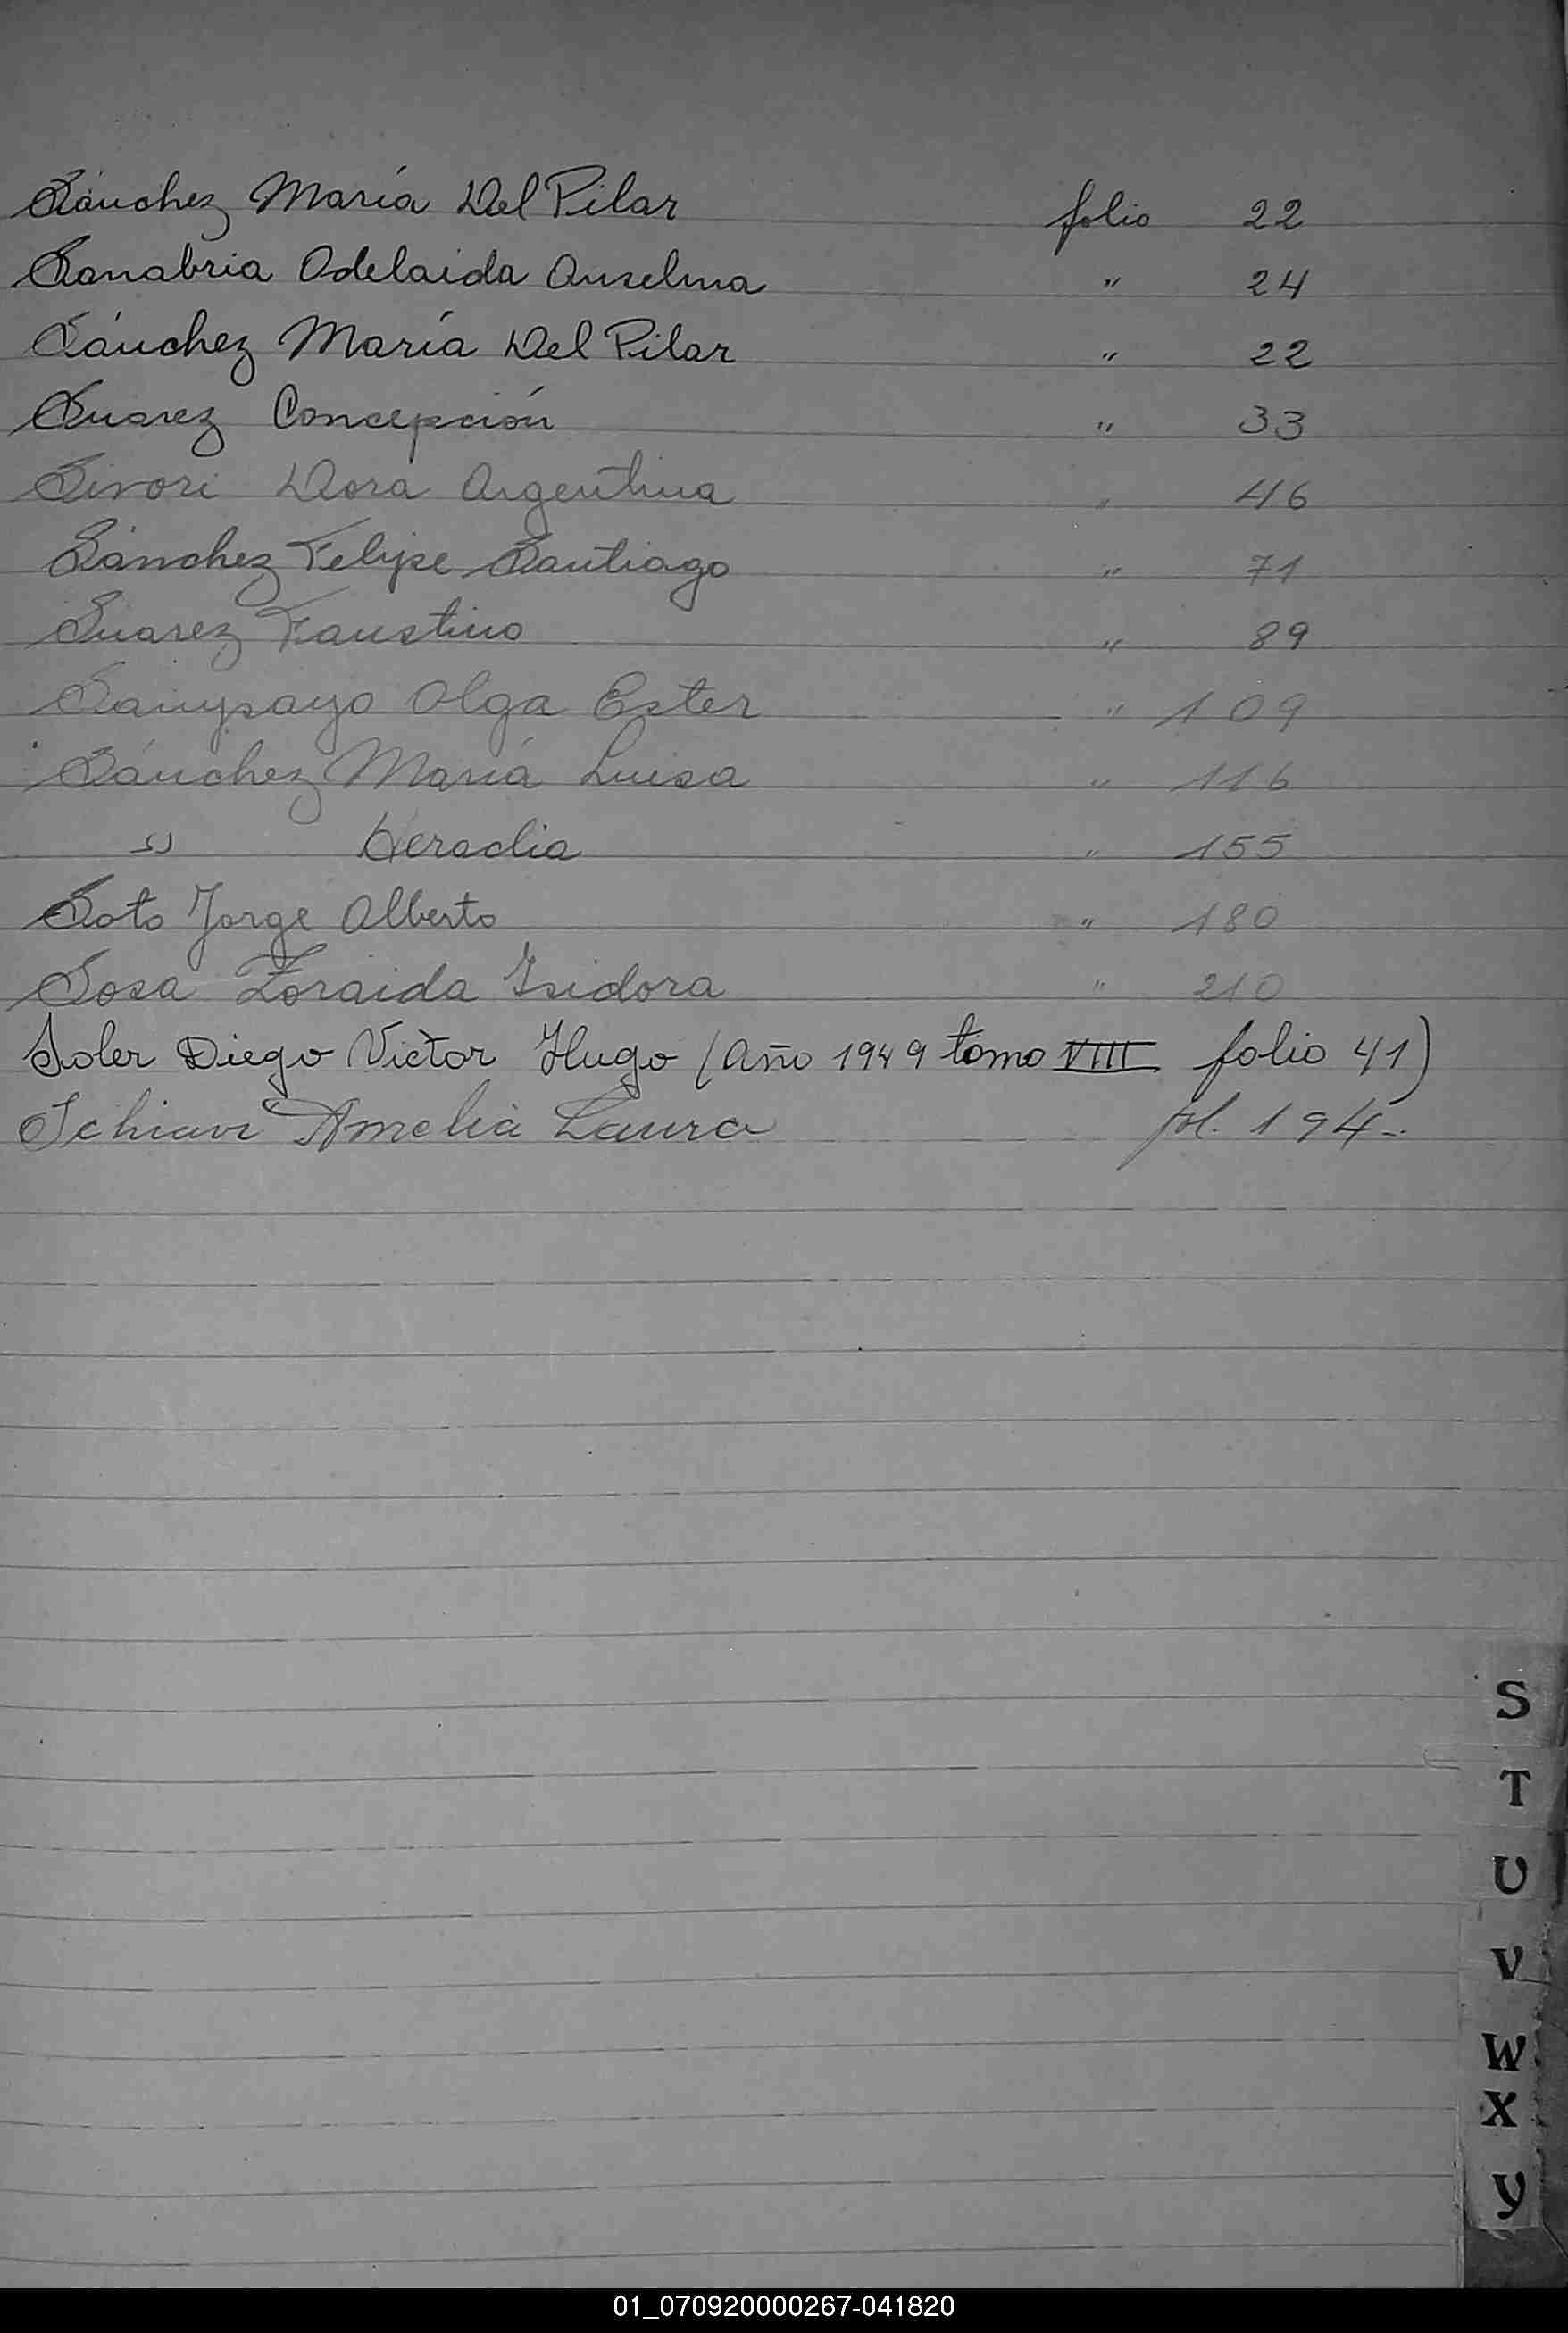 Sánchez María Del Pilar folio 22
Sanabria Adelaida Anselma " 24
Sánchez María Del Pilar " 22
Suarez Concepción " 33
Sivori Dora Argentina " 46
Sánchez Felipe Santiago " 71
Suarez Faustino " 89
Sampayo Olga Ester " 109
Sánchez María Luisa " 116
" Heraclia " 155
Soto Jorge Alberto " 180
Sosa Zoraida Isidora " 210
Soler Diego Victor Hugo (Año 1949 tomo VIII folio 41)
Schiavi Amelia Laura fol. 194-
S
T
U
V
W
X
Y
01_070920000267-041820